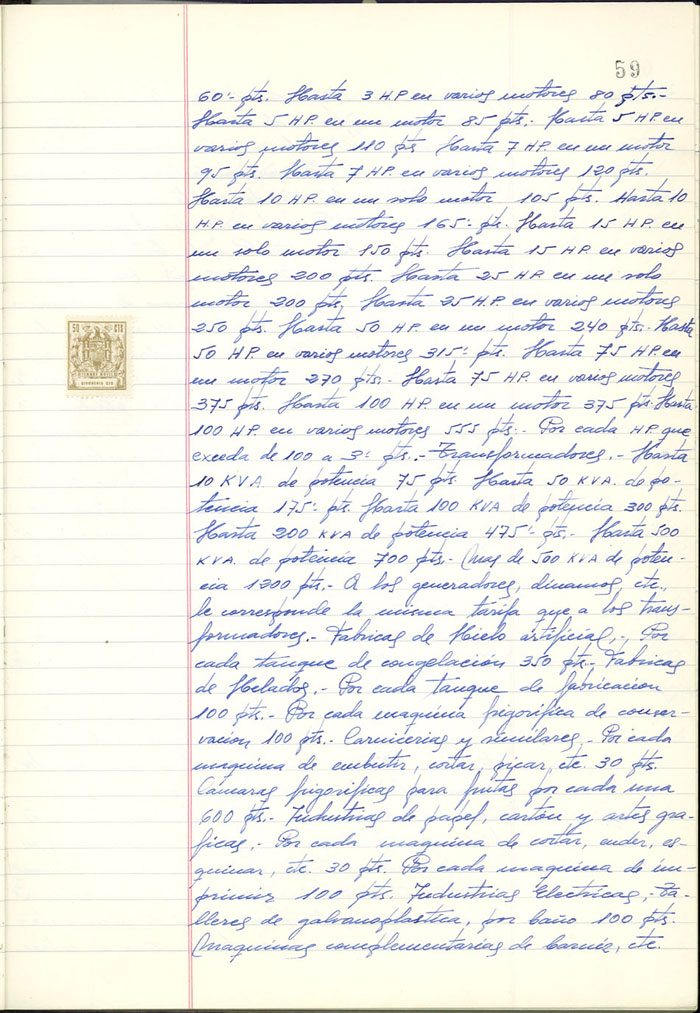 59
60'- pts. Hasta 3 H.P. en varios motores 80 pts.-
Hasta 5 H.P. en un motor 85 pts.- Hasta 5 H.P. en
varios motores 110 pts Hasta 7 H.P. en un motor
95 pts. Hasta 7 H.P. en varios motores 120 pts.
Hasta 10 H.P. en un solo motor 105 pts. Hasta 10
H.P. en varios motores 165'- pts. Hasta 15 H.P. en
un solo motor 150 pts. Hasta 15 H.P. en varios
motores 200 pts. Hasta 25 H.P. en un solo
motor 200 pts. Hasta 25 H.P. en varios motores
250 pts. Hasta 50 H.P. en un motor 240 pts.- Hasta
50 H.P. en varios motores 315'- pts. Hasta 75 H.P. en
un motor 270 pts.- Hasta 75 H.P. en varios motores
375 pts. Hasta 100 H.P. en un motor 375 pts. Hasta
100 H.P. en varios motores 555 pts.- Por cada H.P. que
exceda de 100 a 3'- pts..- Transformadores.- Hasta
10 KVA. de potencia 75 pts. Hasta 50 KVA. de po-
tencia 175'- pts. Hasta 100 KVA de potencia 300 pts.
Hasta 200 KVA de potencia 475'- pts.- Hasta 500
KVA. de potencia 700 pts.- Mas de 500 KVA de poten-
cia 1300 pts.- A los generadores, dinamos, etc.,
le corresponde la misma tarifa que a los trans-
formadores.- Fabricas de Hielo artificial.-, Por
cada tanque de congelación 350 pts.- Fabricas
de Helados.- Por cada tanque de fabricacion
100 pts.- Por cada maquina frigorífica de conser-
vacion 100 pts.- Carnicerias y similares.- Por cada
maquina de embutir, cortar, picar, etc. 30 pts.
Camaras frigorificas para frutas por cada una
600 pts.- Industrias de papel, cartón y artes gra-
ficas.- Por cada maquina de cortar, es-
quinar, etc. 30 pts. Por cada maquina de im-
primir 100 pts. Industrias Electricas.- Ta-
lleres de galvanoplastica, por baño 100 pts.
Maquinas complementarias de barniz, etc.
50 CTS
TIMBRE MOVIL
CINCUENTA CTS